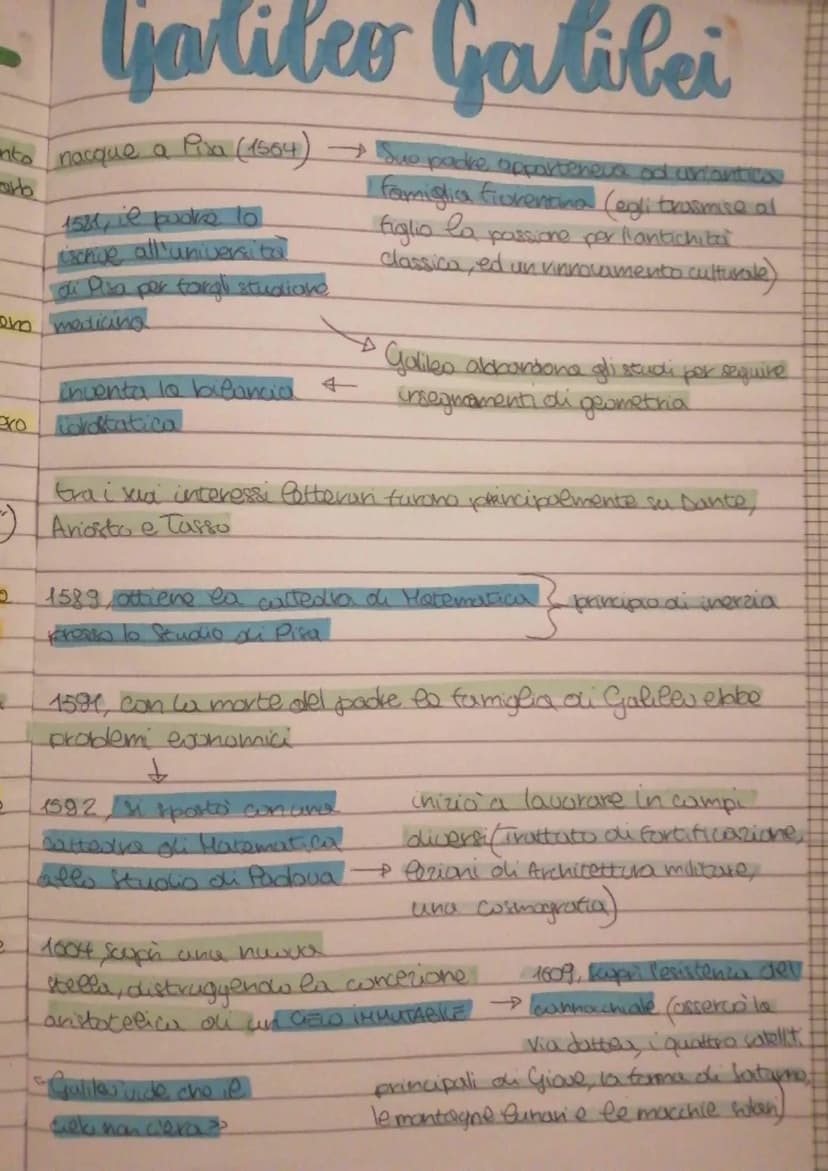 Galileo Galilei
nacque a Pisa (1564) → Suo padre apparteneva ad un'antica
famiglia fiorentina (egli trasmise al
figlio la passione per l'antichità
classica, ed un rinnovamento culturale)
1581, il padre lo
iscrive all'università
di Pisa per fargli studiare
medicina
Galileo abbandona gli studi per seguire
insegnamenti di geometria
inventa la bilancia ←
idrostatica
tra i suoi interessi letterari furono principalmente su Dante,
Ariosto e Tasso
1589, ottiene la cattedra di Matematica } principio di inerzia
presso lo Studio di Pisa
1591, con la morte del padre la famiglia di Galileo ebbe
problemi economici
↓
1592, si spostò con una
cattedra di Matematica
allo Studio di Padova →
iniziò a lavorare in campi
diversi (Trattato di fortificazione,
lezioni di Architettura militare,
una cosmografia)
1604 scoprì una nuova
stella, distruggendo la concezione
aristotelica di un CIELO IMMUTABILE →
1609, scoprì l'esistenza del
cannocchiale (osservò la
via lattea, i quattro satelliti
principali di Giove, la forma di Saturno,
le montagne lunari e le macchie solari)
<<Galileo vide che il
cielo non c'era>>
nto